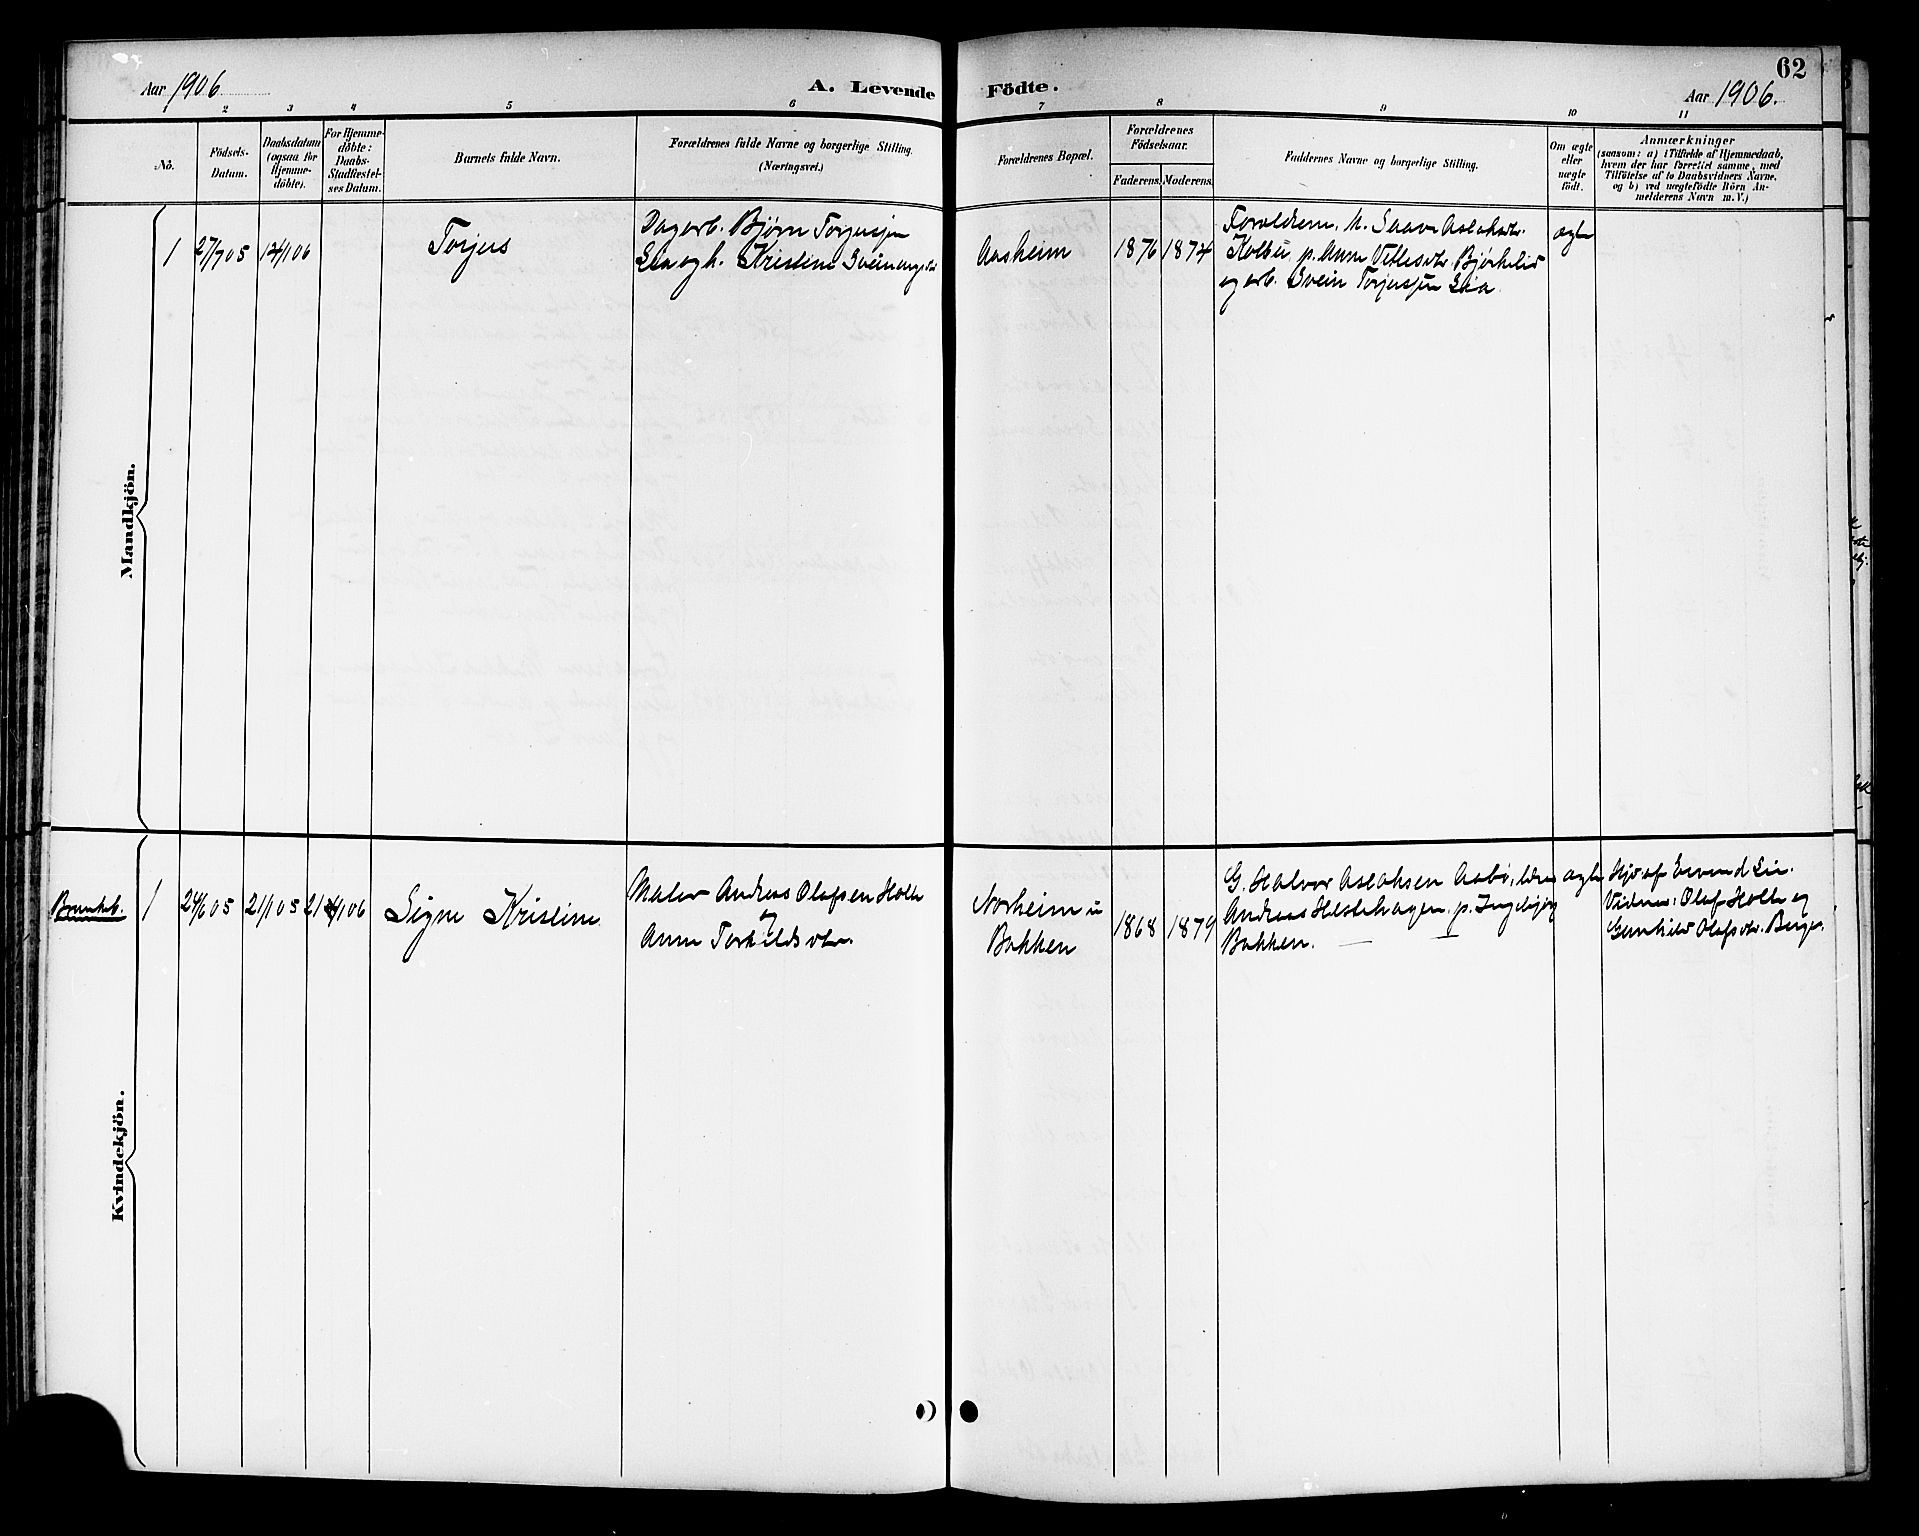 62
Aar 1906.
A. Levende Födte.
Aar 1906.
1 2 3 4 5 6 7 8 9 10 11
No.
Födsels-
Datum.
Daabsdatum
(ogsaa for
Hjemme-
döbte).
For Hjemme-
döbte:
Daabs-
Stadfæstel-
ses Datum.
Barnets fulde Navn.
Forældrenes fulde Navne og borgerlige Stilling.
(Næringsvei.)
Forældrenes Bopæl.
Forældrenes
Födselsaar.
Faderens. Moderens.
Faddernes Navne og borgerlige Stilling.
Om ægte
eller
uægte
födt.
Anmærkninger
(saasom: a) i Tilfælde af Hjemmedaab,
hvem der har forrettet samme, med
Tilföielse af to Daabsvidners Navne.
og b) ved uægtefödte Börn An-
melderens Navn m. V.)
Mandkjön.
1
27/7 05
14/1 06
Torjus
Dagarb. Bjørn Torjussen
Lia og h. Kristine Sveinungsdtr.
Aasheim
1876
1874
Forældrene, k. Saave Aslaksdtr.
Kolbu p. Anne Vetlesdtr. Bjørkelid
og arb. Svein Torjussen Lia.
ægte
Kvindekjön.
Brunkeb.
1
24/6 05
21/1 05
21/4 06
Signe Kristine
Maler Andreas Olafsen Holte
og
Anne Torkildsdtr.
Norheim u
Bakken
1868
1879
G. Halvor Aslaksen Aabø, lærer
Andreas Hestehagen, p. Ingebjørg
Bakken.
ægte
Hjd af Eivind Lie.
Vidner: Olaf Holte og
Gunhild Olafsdtr. Berge.